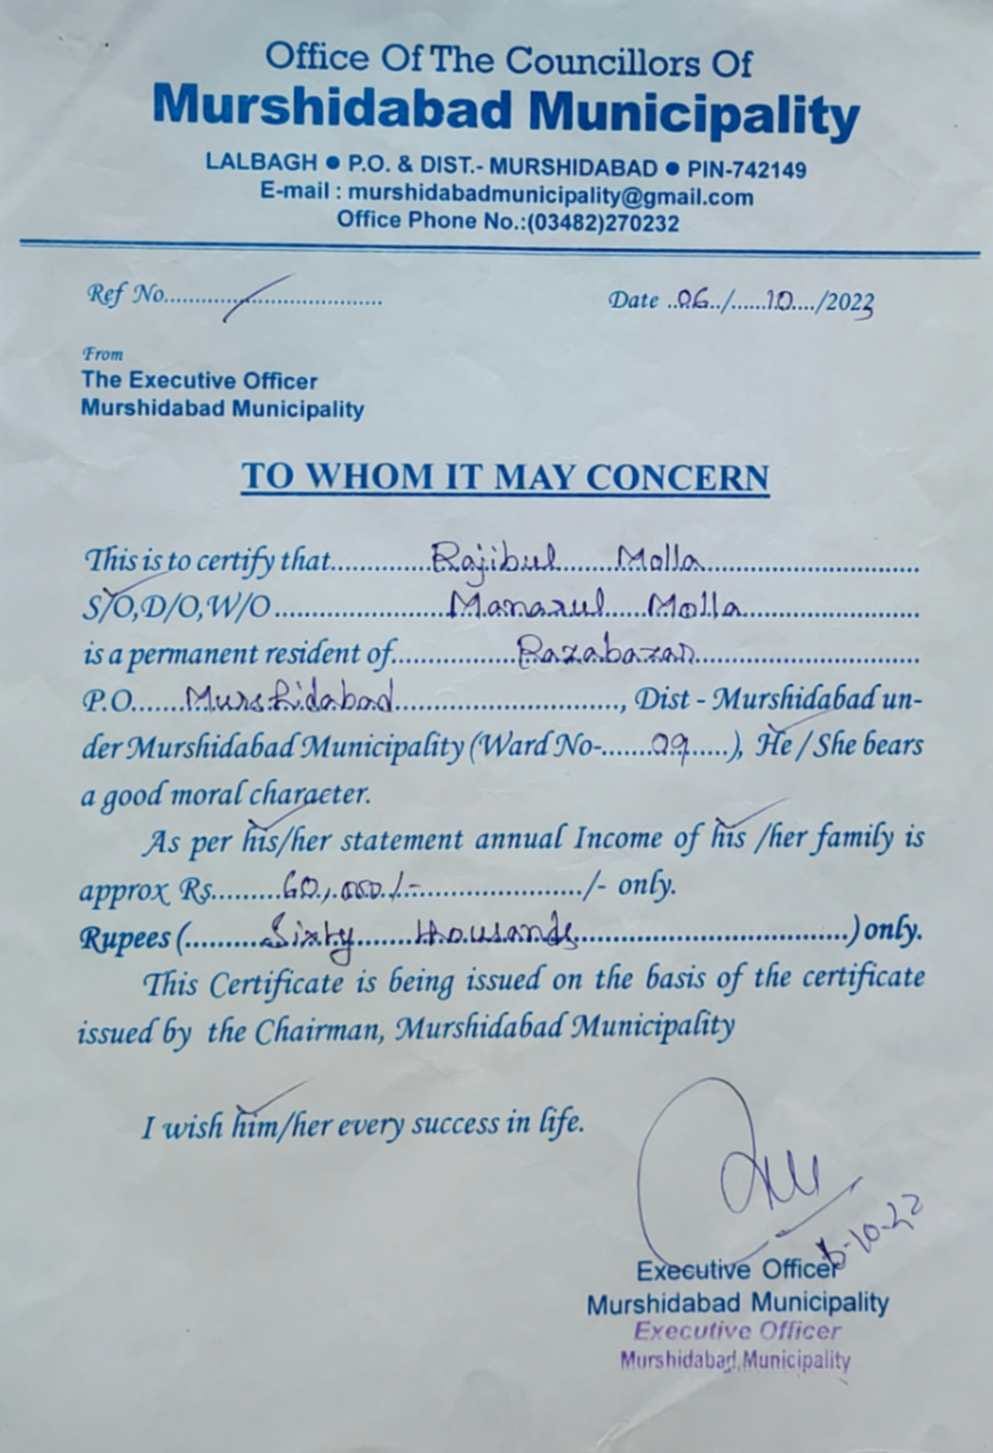 Office Of The Councillors Of
Murshidabad Municipality
LALBAGH ● P.O. & DIST.- MURSHIDABAD ● PIN-742149
E-mail : murshidabadmunicipality@gmail.com
Office Phone No.:(03482)270232
Ref No.............................................. Date ..06../......10..../2023
From
The Executive Officer
Murshidabad Municipality
TO WHOM IT MAY CONCERN
This is to certify that..............Rajibul........Molla..............................
S/O,D/O,W/O.........................Manarul......Molla.........................
is a permanent resident of.................Razabazar...............................
P.O.......Murshidabad................................, Dist - Murshidabad un-
der Murshidabad Municipality (Ward No-.......09......), He / She bears
a good moral character.
As per his/her statement annual Income of his /her family is
approx Rs.........60,000/-........................./- only.
Rupees (...........Sixty........thousands....................................) only.
This Certificate is being issued on the basis of the certificate
issued by the Chairman, Murshidabad Municipality
I wish him/her every success in life.
Executive Officer
Murshidabad Municipality
Executive Officer
Murshidabad Municipality